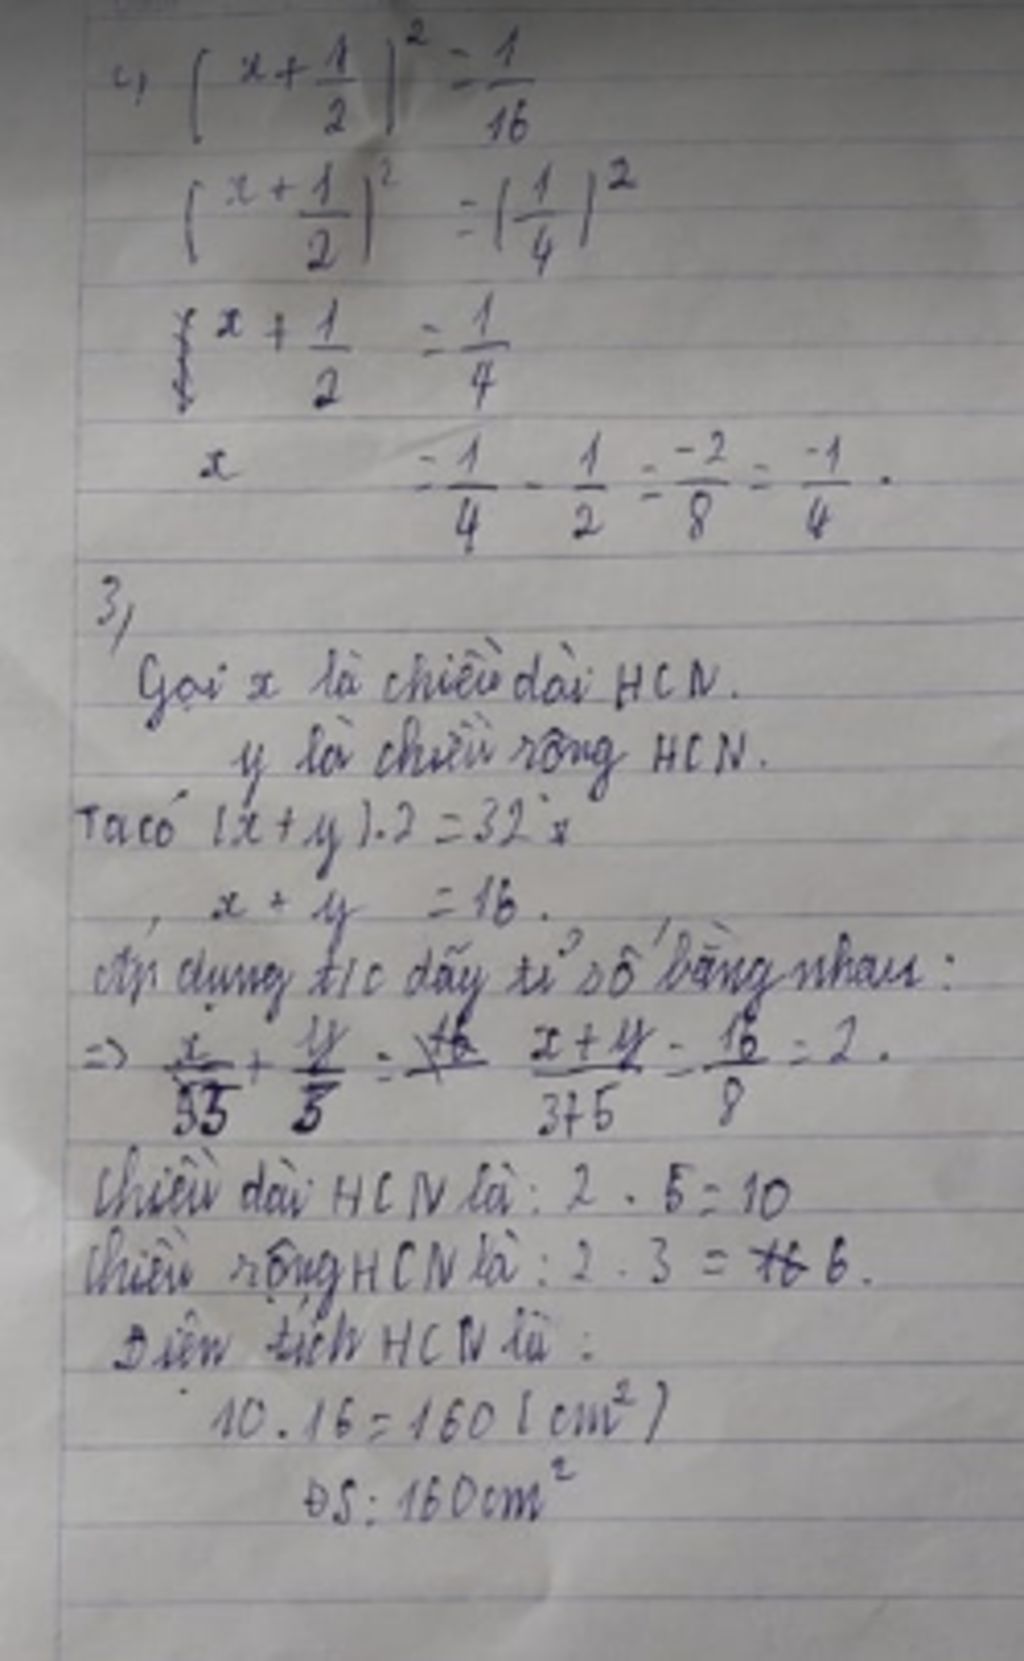 c, (x + 1/2)² = 1/16
(x + 1/2)² = (1/4)²
x + 1/2 = 1/4
x = 1/4 - 1/2 = -2/8 = -1/4.
3,
Gọi x là chiều dài HCN.
y là chiều rộng HCN.
Ta có (x + y).2 = 32
x + y = 16.
Áp dụng t/c dãy tỉ số bằng nhau:
=> x/5 + y/3 = x+y/3+5 = 16/8 = 2.
Chiều dài HCN là: 2 . 5 = 10
Chiều rộng HCN là: 2 . 3 = 6.
Diện tích HCN là:
10 . 16 = 160 (cm²)
ĐS: 160cm²